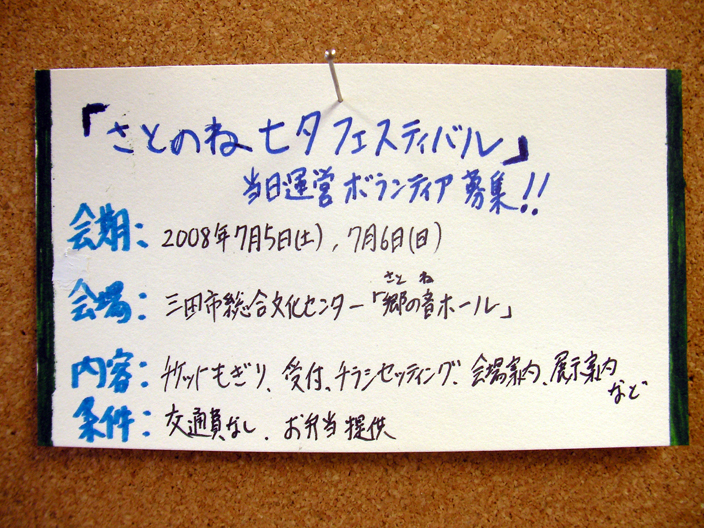 「さとのね七夕フェスティバル」
当日運営ボランティア募集!!
会期：2008年7月5日(土)，7月6日(日)
さと ね
会場：三田市総合文化センター「郷の音ホール」
内容：チケットもぎり、受付、チラシセッティング、会場案内、展示案内
など
条件：交通費なし．お弁当提供